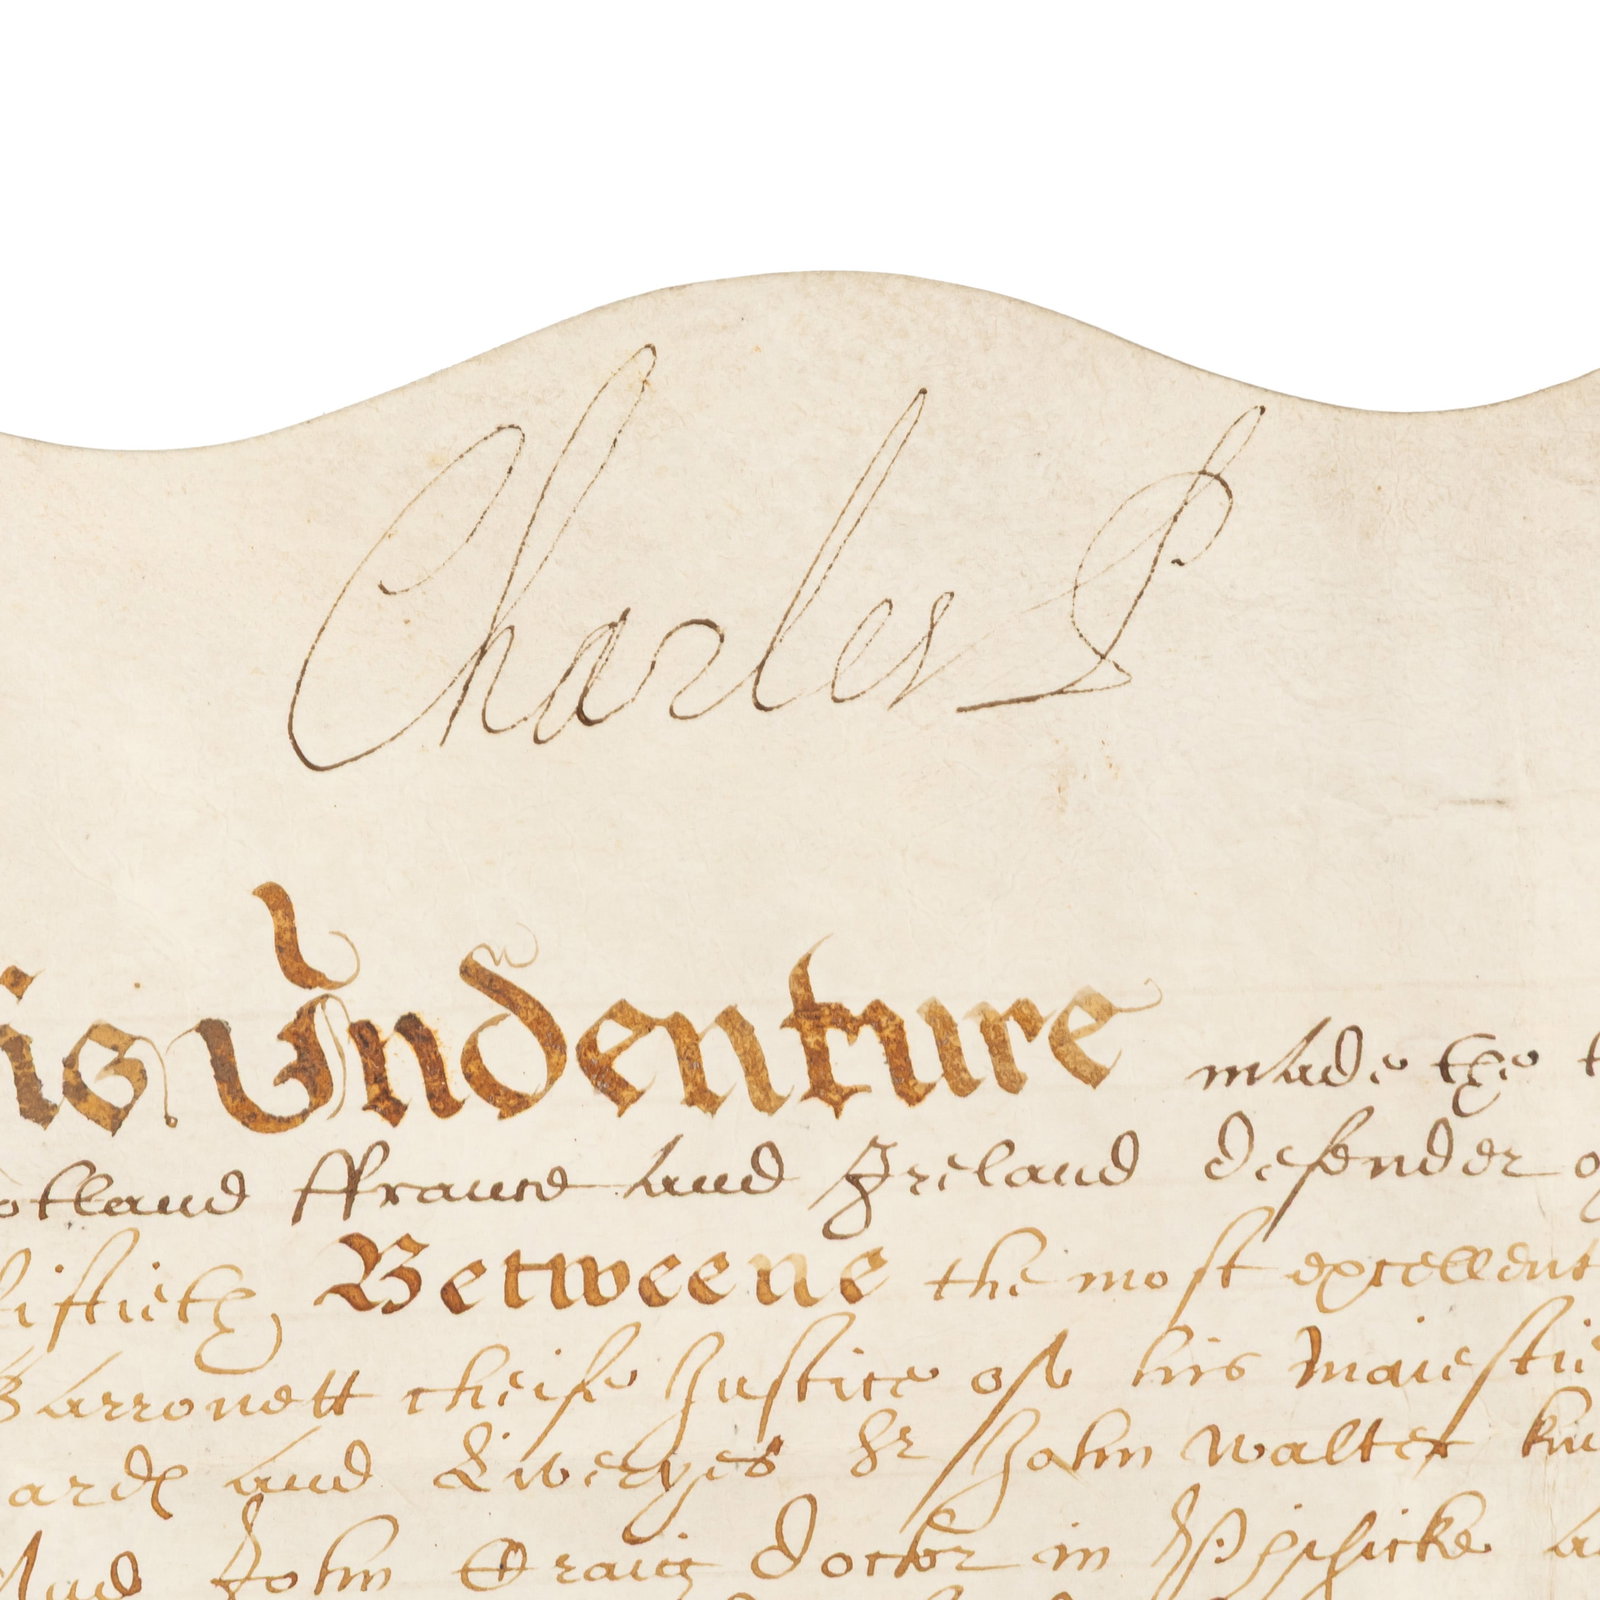 Charles P
is Indenture made the
otland ffrance and Ireland defender of
fiftieth Betweene the most excellent
Barronett cheife Justice of his Maiestie
ard and Liveryes Sr John Walter kni
John Craig Doctor in Phisicke